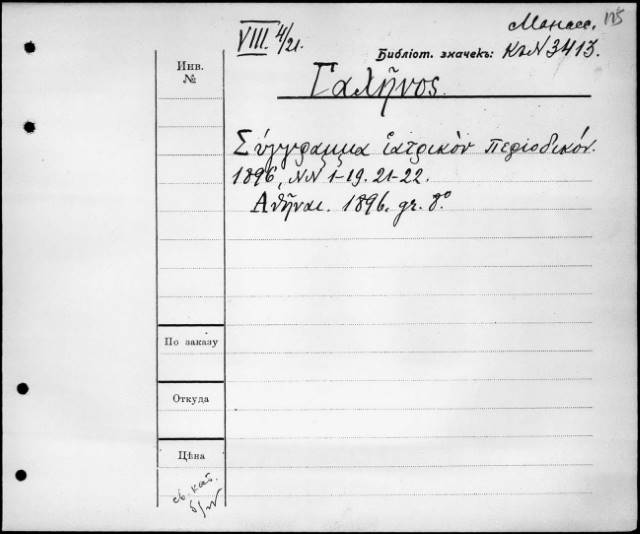 VIII. 4/21.
Манас. 175
Библіот. значекъ: К№ 3413.
Инв.
№
Γαληνος.
Σύγγραμμα ἰατρικὸν περιοδικόν.
1896, NN 1-19. 21-22.
Ἀθῆναι. 1896. gr. 8.°
По заказу
Откуда
Цѣна
св. кат.